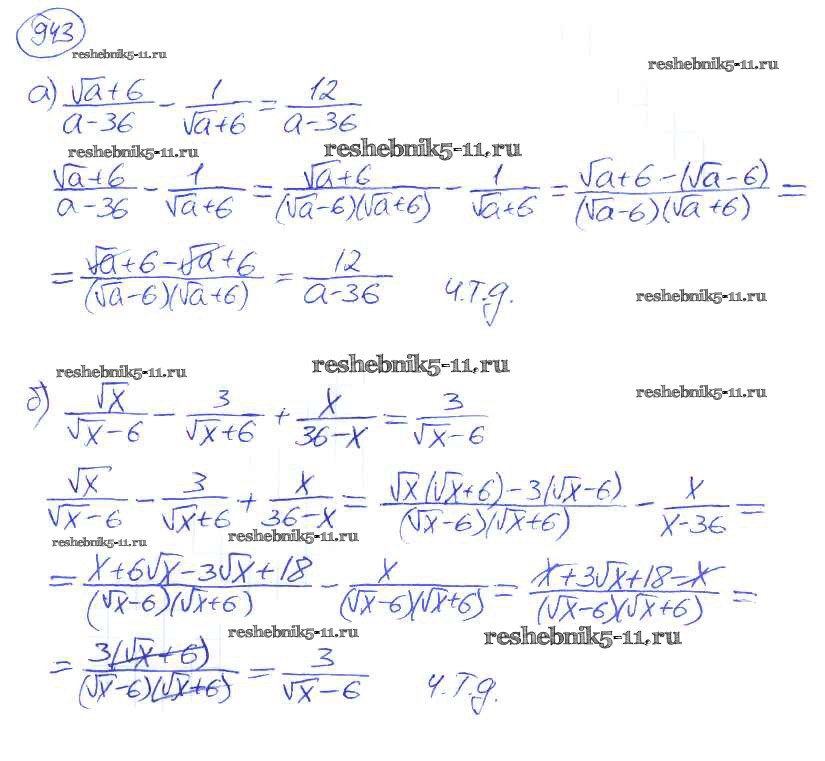 943
reshebnik5-11.ru
reshebnik5-11.ru
а) (√a+6)/(a-36) - 1/(√a+6) = 12/(a-36)
reshebnik5-11.ru
reshebnik5-11.ru
(√a+6)/(a-36) - 1/(√a+6) = (√a+6)/((√a-6)(√a+6)) - 1/(√a+6) = (√a+6-(√a-6))/((√a-6)(√a+6)) =
= (√a+6-√a+6)/((√a-6)(√a+6)) = 12/(a-36) ч.т.д.
reshebnik5-11.ru
reshebnik5-11.ru
reshebnik5-11.ru
reshebnik5-11.ru
б) √x/(√x-6) - 3/(√x+6) + x/(36-x) = 3/(√x-6)
√x/(√x-6) - 3/(√x+6) + x/(36-x) = (√x(√x+6)-3(√x-6))/((√x-6)(√x+6)) - x/(x-36) =
reshebnik5-11.ru
reshebnik5-11.ru
= (x+6√x-3√x+18)/((√x-6)(√x+6)) - x/((√x-6)(√x+6)) = (x+3√x+18-x)/((√x-6)(√x+6)) =
reshebnik5-11.ru
reshebnik5-11.ru
= 3(√x+6)/((√x-6)(√x+6)) = 3/(√x-6) ч.т.д.